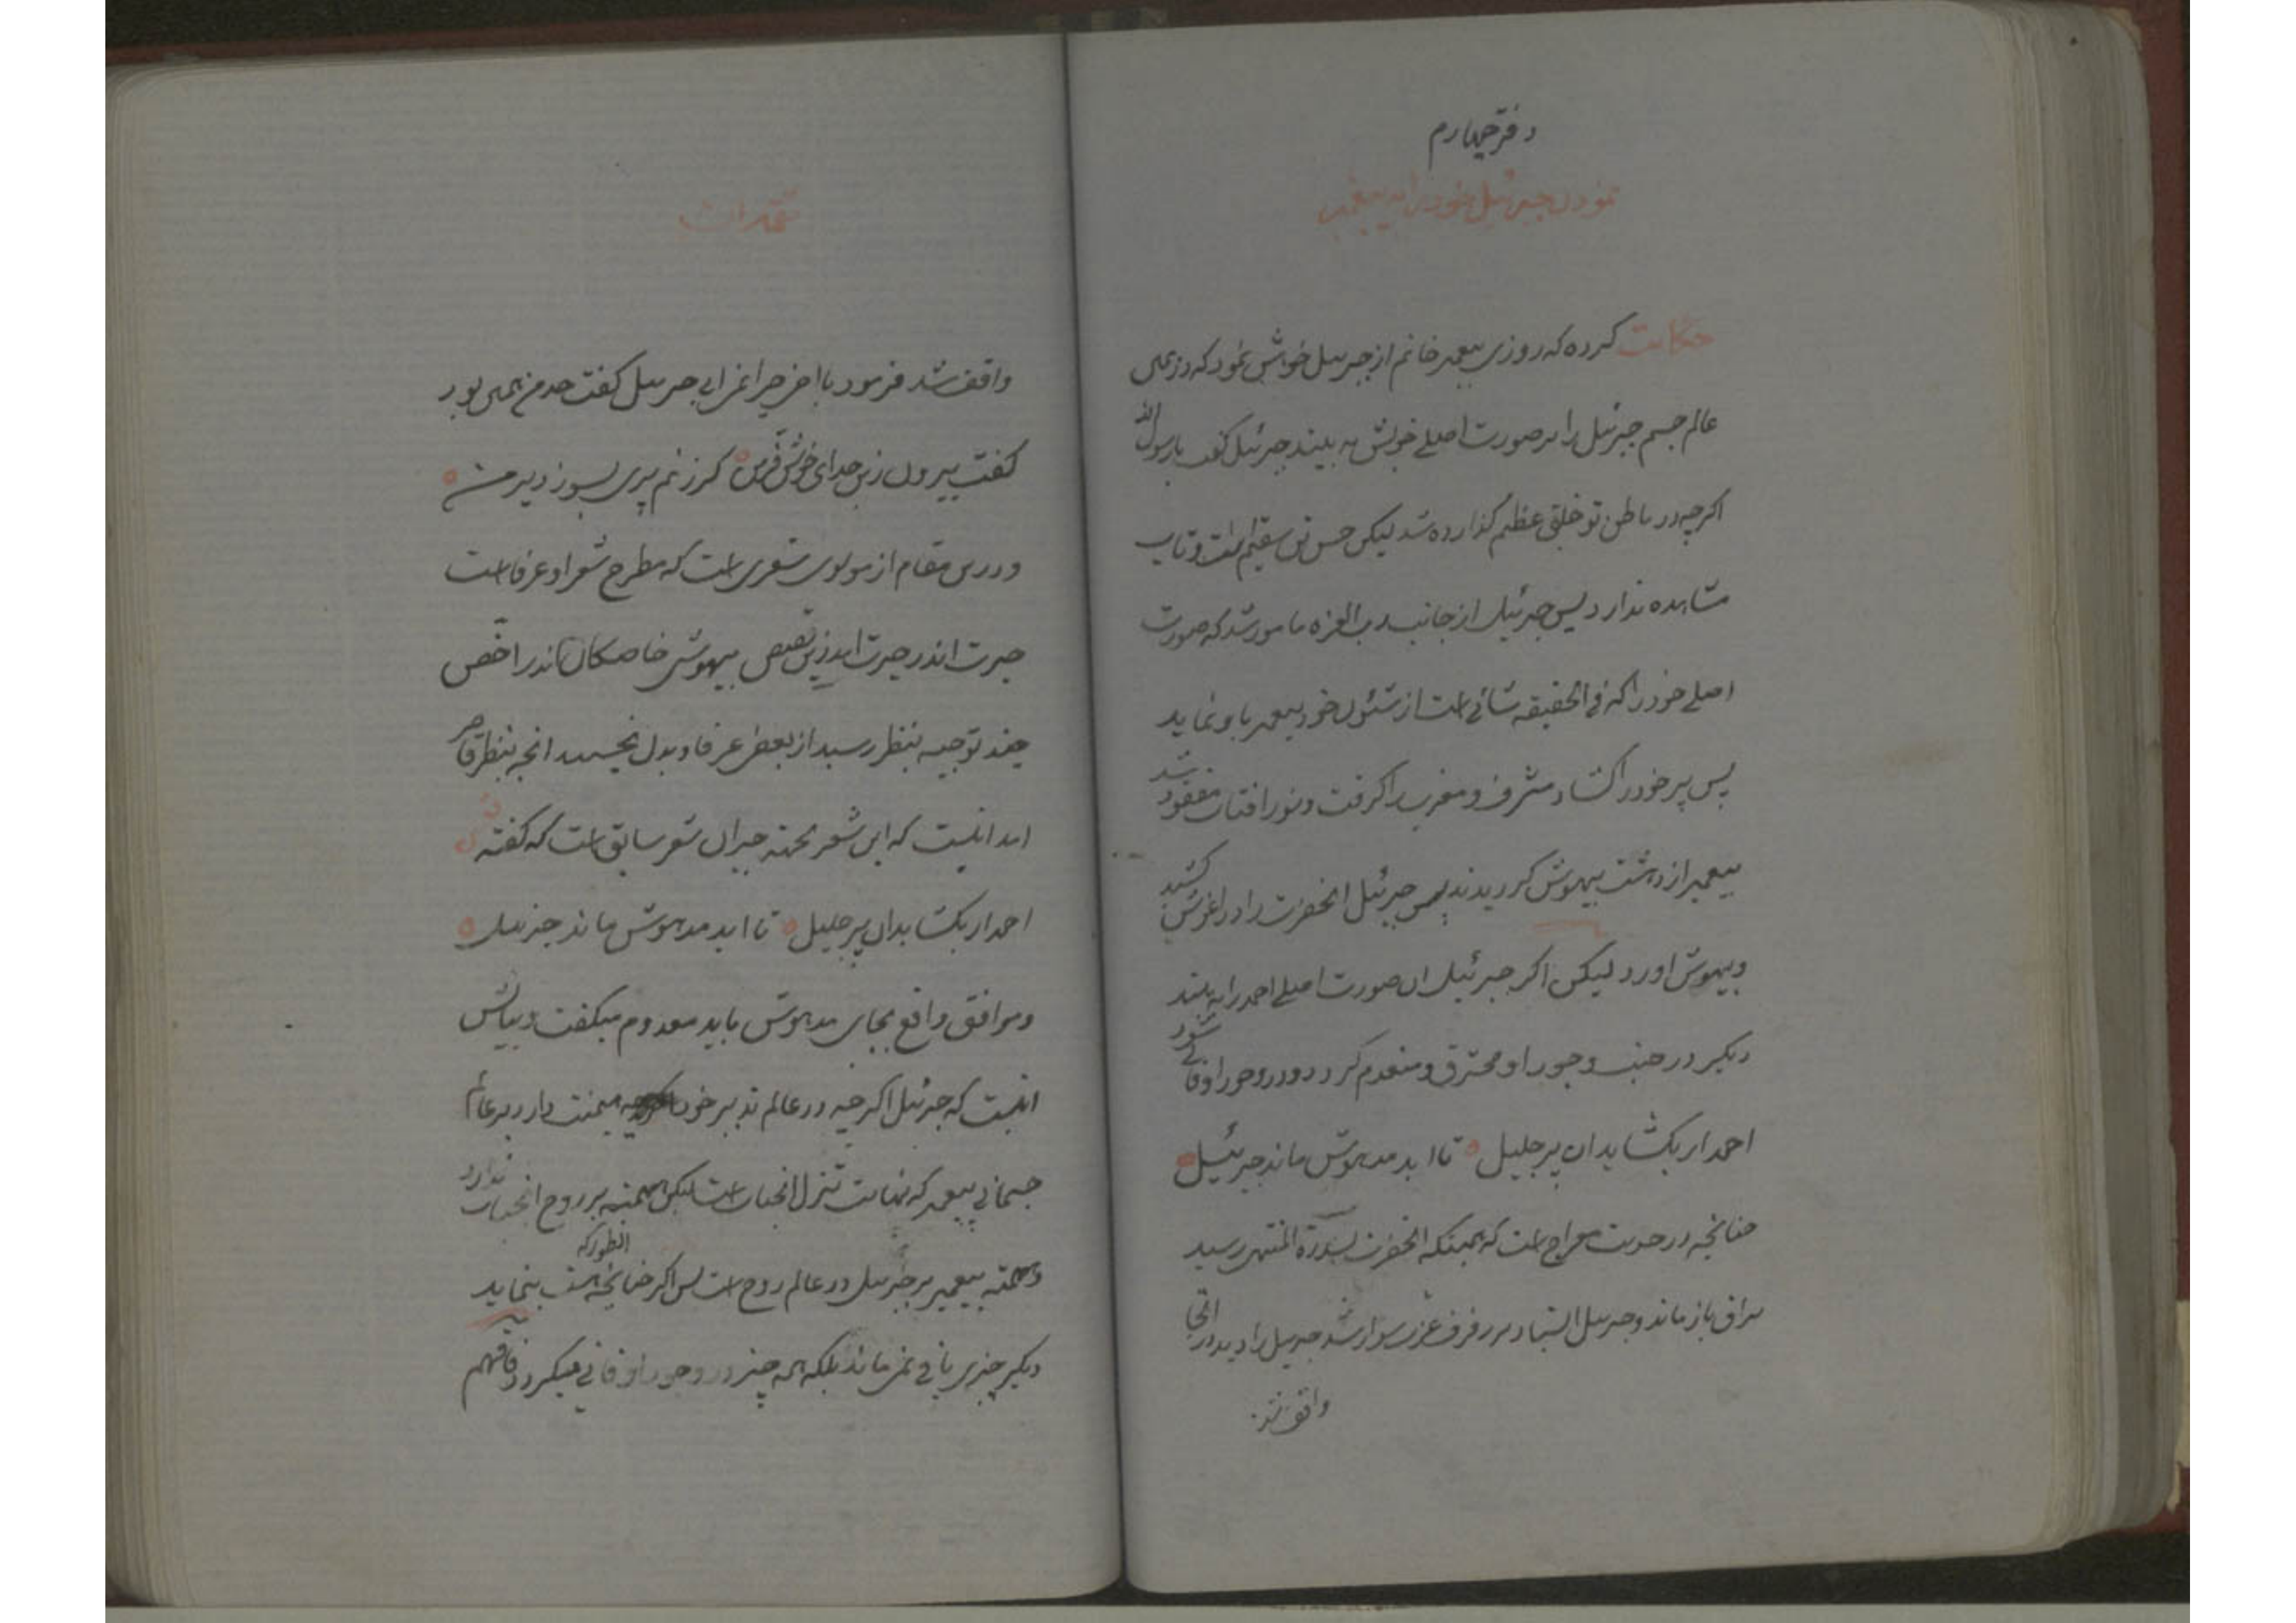 دفتر چهارم
نمودن جبرئیل خود را به پیغمبر
حکایت کرده که روزی پیغمبر خاتم از جبرئیل خواهش نمود که در همی
عالم جسم جبرئیل را بر صورت اصلی خویش به بیند جبرئیل گفت یا رسول الله
اگرچه در باطن تو خلقی عظیم گذارده شد لیکن حس تن سقیم است و تاب
مشاهده ندارد پس جبرئیل از جانب رب العزه مامور شد که صورت
اصلی خود را که فی الحقیقه شانی است از شئون خود پیغمبر باو نماید
پس پر خود را گشاد مشرق و مغرب را گرفت و نور افتاب مفقود شد
پیغمبر از دهشت بیهوش گردیدند پس جبرئیل انحضرت را در اغوش کشید
و بیهوش اورد لیکن اگر جبرئیل ان صورت اصلی احمد را به بیند
دیگر در جنب وجود او محترق و منعدم گردد و در وجود او فانی شود
احمد ار بگشاید ان پر جلیل تا ابد مدهوش ماند جبرئیل
چنانچه در حدیث معراج است که همینکه انحضرت بسدرة المنتهی رسید
براق باز ماند و جبرئیل ایستاد بر رفرف عزت سوار شد جبرئیل را دید در انجا
واقف شد
تتمه ایضا
واقف شد فرمود یا اخی چرا نمی ایی جبرئیل گفت حد من همی بود
گفت بیرون زین حد ای خوش فر من گر زنم پری بسوزد پر من
و درین مقام از مولوی شعری است که مطرح شعرا و عرفا است
حیرت اندر حیرت امد زین قصص بیهوشی خاصگان اندر اخص
چند توجیه بنظر رسید از بعض عرفا و بدل نچسبید انچه بنظر قاصر
امد اینست که این شعر بجهته جبران شعر سابق است که گفته
احمد ار بگشاید ان پر جلیل تا ابد مدهوش ماند جبرئیل
و موافق واقع بجای مدهوش باید معدوم میگفت و بیانش
اینست که جبرئیل اگرچه در عالم تدبیر خود هیمنت دارد بر عالم
جسمانی پیغمبر که نهایت تنزل انجناب است لیکن هیمنه بر روح انجناب ندارد
و هیمنه پیغمبر بر جبرئیل در عالم روح است پس اگر چنانچه انطور که هست بنماید
دیگر چیزی باقی نمی ماند بلکه همه چیز در وجود او فانی میگردد فافهم